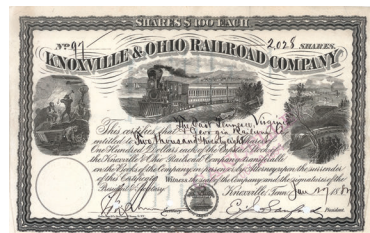 SHARES $100 EACH
No 97 2,028 SHARES.
KNOXVILLE & OHIO RAILROAD COMPANY
This certifies that The East Tennessee Virginia
& Georgia Railway Co
entitled to Two Thousand twenty eight
One Hundred Dollars each of the Capital Stock of
the Knoxville & Ohio Railroad Company transferable
on the Books of the Company in person or by Attorney upon the surrender
of this Certificate Witness the seal of the Company and the signatures of the
President & Secretary
Knoxville, Tenn. Jan
President